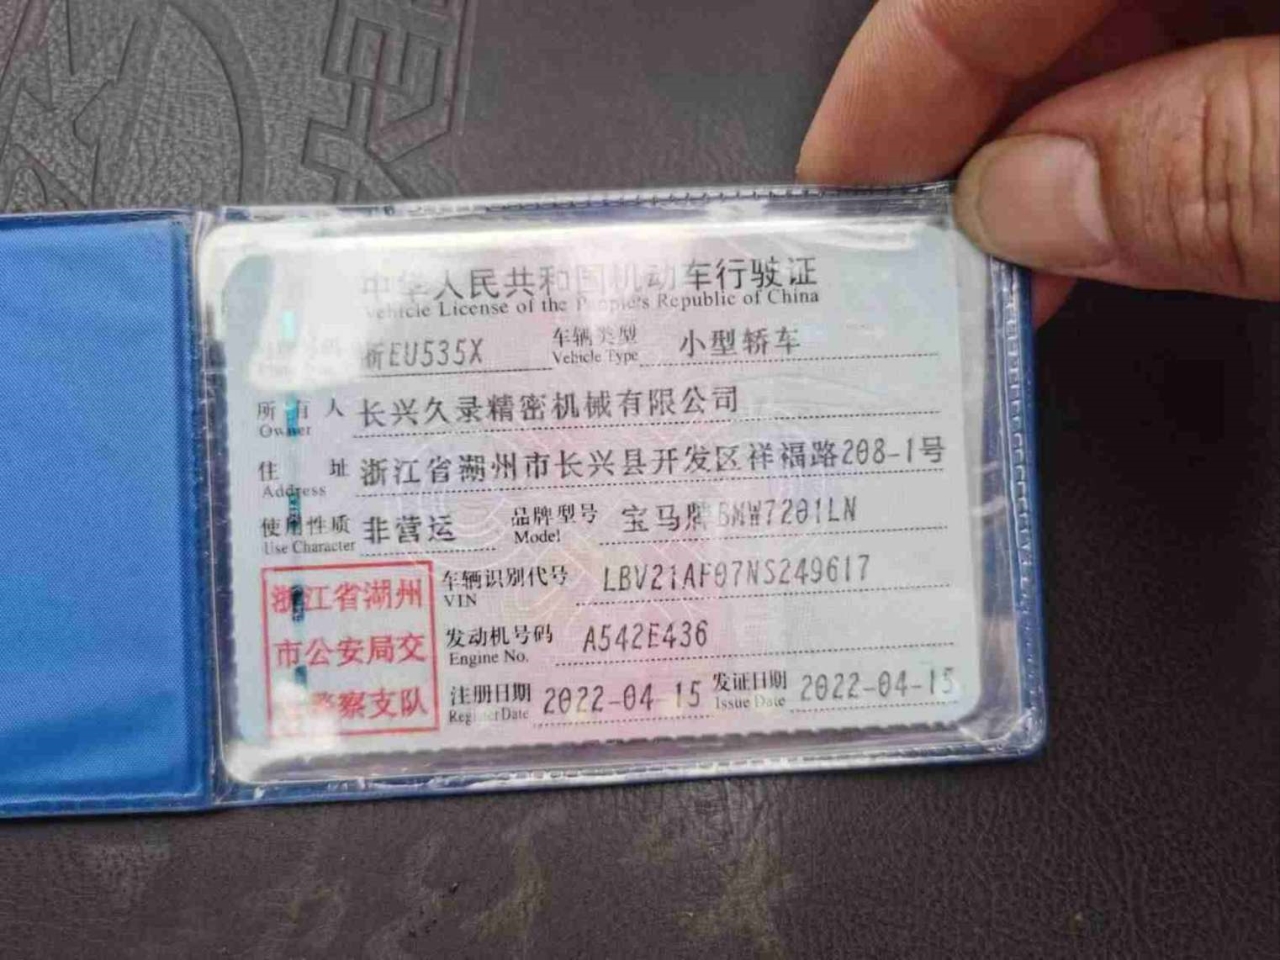 中华人民共和国机动车行驶证
Vehicle License of the People's Republic of China
浙EU535X 车辆类型 Vehicle Type 小型轿车
所有人 Owner 长兴久录精密机械有限公司
住址 Address 浙江省湖州市长兴县开发区祥福路208-1号
使用性质 Use Character 非营运 品牌型号 Model 宝马牌BMW7201LN
车辆识别代号 VIN LBV21AF07NS249617
发动机号码 Engine No. A542E436
注册日期 Register Date 2022-04-15 发证日期 Issue Date 2022-04-15
浙江省湖州
市公安局交
警察支队